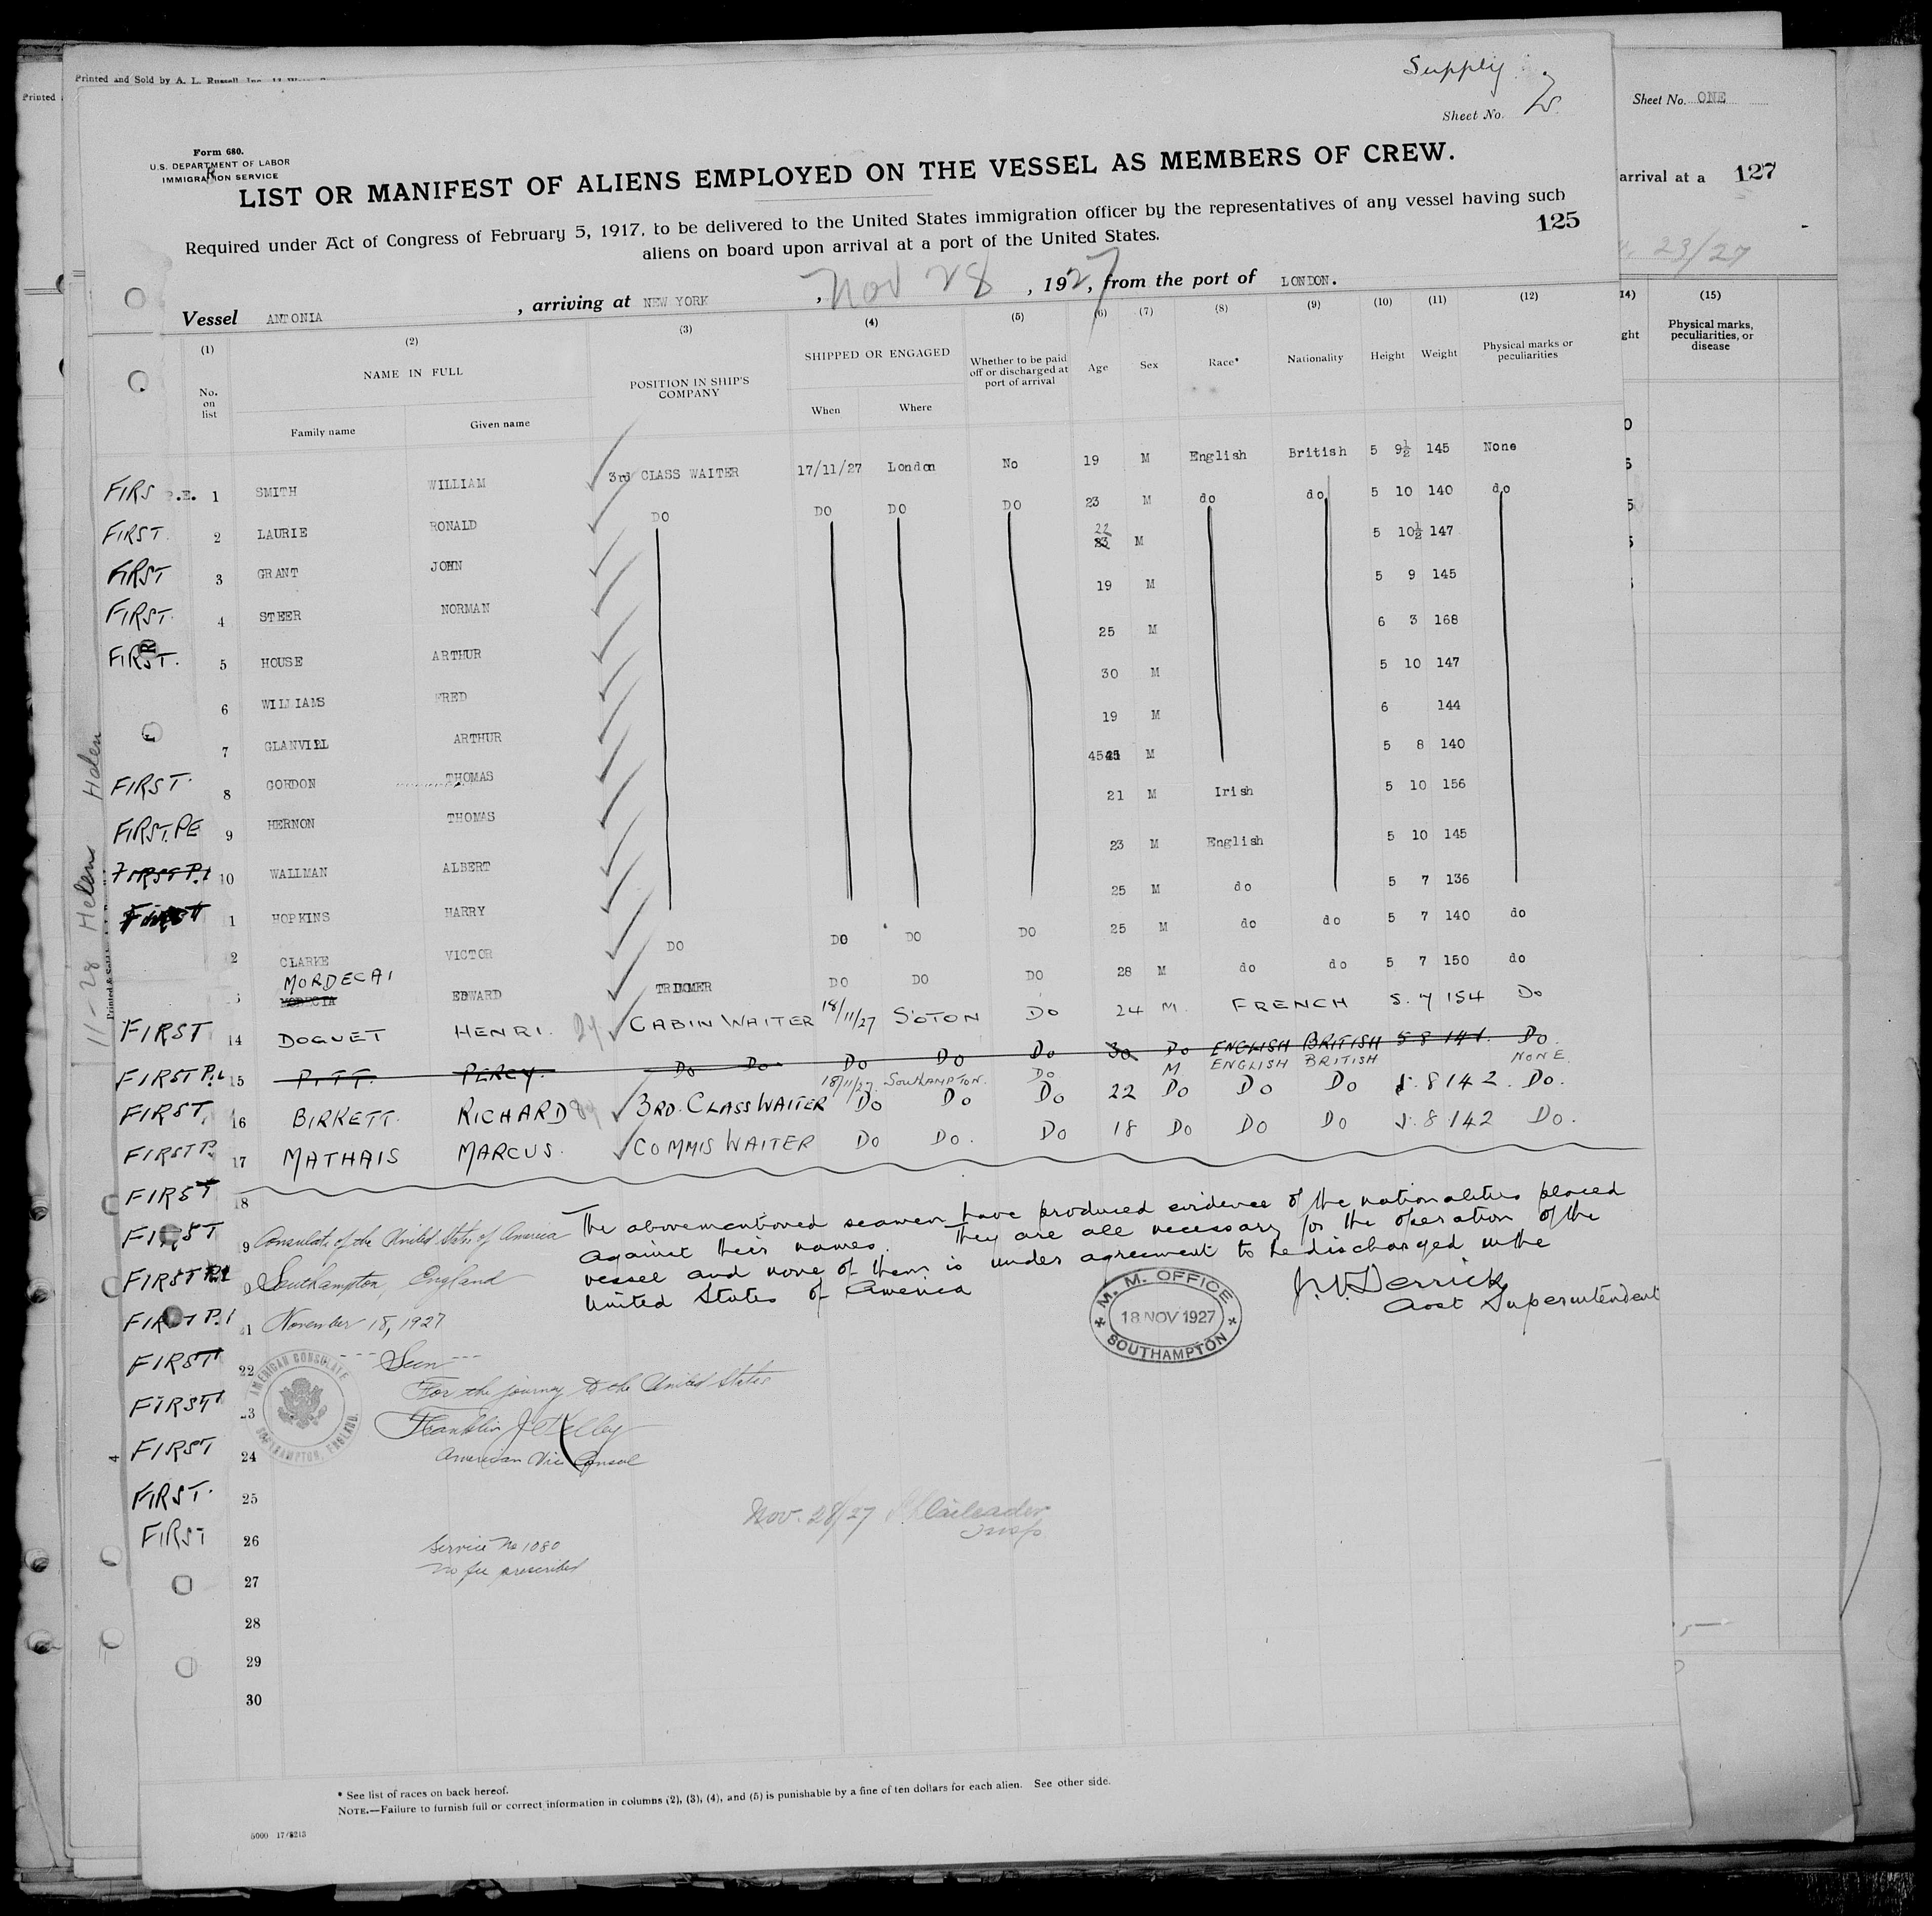 Printed and Sold by A. L. Russell, Inc.
Printed
Supply
Sheet No.
Sheet No. ONE
Form 680.
U.S. DEPARTMENT OF LABOR
IMMIGRATION SERVICE
LIST OR MANIFEST OF ALIENS EMPLOYED ON THE VESSEL AS MEMBERS OF CREW.
arrival at a 127
Required under Act of Congress of February 5, 1917, to be delivered to the United States immigration officer by the representatives of any vessel having such
aliens on board upon arrival at a port of the United States.
125
23/27
Vessel ANTONIA , arriving at NEW YORK , Nov 28 , 1927, from the port of LONDON.
(1) (2) (3) (4) (5) (6) (7) (8) (9) (10) (11) (12) 14) (15)
No. on list NAME IN FULL POSITION IN SHIP'S COMPANY SHIPPED OR ENGAGED Whether to be paid off or discharged at port of arrival Age Sex Race* Nationality Height Weight Physical marks or peculiarities ght Physical marks, peculiarities, or disease
Family name Given name When Where
FIRS P.E. 1 SMITH WILLIAM 3rd CLASS WAITER 17/11/27 London No 19 M English British 5 9½ 145 None
FIRST 2 LAURIE RONALD DO DO DO DO 23 M do do 5 10 140 do
FIRST 3 GRANT JOHN 22 23 M 5 10½ 147
FIRST. 4 STEER NORMAN 19 M 5 9 145
FIRST. 5 HOUSE ARTHUR 25 M 6 3 168
6 WILLIAMS FRED 30 M 5 10 147
7 GLANVILL ARTHUR 19 M 6 144
FIRST. 8 GORDON THOMAS 45 M 5 8 140
FIRST. PE 9 HERNON THOMAS 21 M Irish 5 10 156
FIRST P.1 10 WALLMAN ALBERT 23 M English 5 10 145
FIRST 1 HOPKINS HARRY 25 M do 5 7 136
2 CLARKE VICTOR DO DO DO DO 25 M do do 5 7 140 do
MORDECAI
EDWARD TRIMMER DO DO DO 28 M do do 5 7 150 do
FIRST 14 DOGUET HENRI. 24 CABIN WAITER 18/11/27 S'OTON DO 24 M. FRENCH 5. 7 154 DO
FIRST P.1 15 PITT. PERCY. DO DO DO DO DO 30 DO ENGLISH BRITISH 5 8 141. DO.
18/11/27. SOUTHAMPTON. DO M ENGLISH BRITISH NONE
FIRST. 16 BIRKETT. RICHARD 3RD. CLASS WAITER DO DO DO 22 DO DO DO 5. 8 142. DO.
FIRST P. 17 MATHAIS MARCUS. COMMIS WAITER DO DO. DO 18 DO DO DO 5. 8 142 DO.
FIRST 18
The abovementioned seamen have produced evidence of the nationalities placed
against their names. They are all necessary for the operation of the
vessel and none of them is under agreement to be discharged in the
United States of America
J. V. Derrick
Asst Superintendent
M. M. OFFICE
18 NOV 1927
SOUTHAMPTON
FIRST 9 Consulate of the United States of America
FIRST P.1 Southampton, England
FIRST P.1 21 November 18, 1927
FIRST 22 --- Seen ---
For the journey to the United States
FIRST 23 Franklin J. Kelley
FIRST 24 American Vice Consul
AMERICAN CONSULATE
SOUTHAMPTON, ENGLAND.
FIRST. 25
Nov. 28/27
Insp
FIRST 26
Service No 1080
no fee prescribed
27
28
29
30
11-28 Helen Helen
* See list of races on back hereof.
NOTE.—Failure to furnish full or correct information in columns (2), (3), (4), and (5) is punishable by a fine of ten dollars for each alien. See other side.